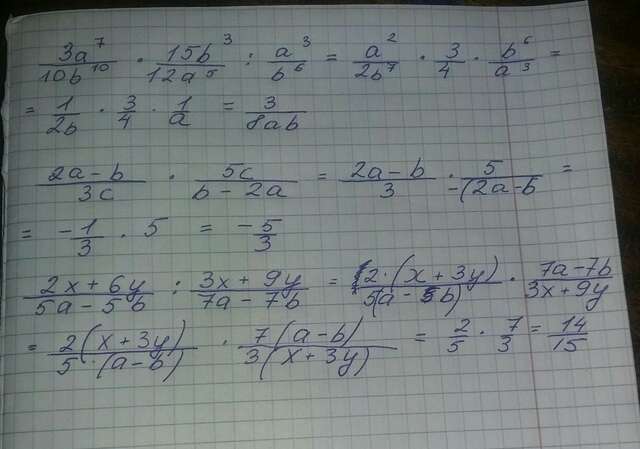 3a⁷/10b¹⁰ · 15b³/12a⁵ : a³/b⁶ = a²/2b⁷ · 3/4 · b⁶/a³ =
= 1/2b · 3/4 · 1/a = 3/8ab
2a-b/3c · 5c/b-2a = 2a-b/3 · 5/-(2a-b =
= -1/3 · 5 = -5/3
2x+6y/5a-5b : 3x+9y/7a-7b = 2·(x+3y)/5(a-b) · 7a-7b/3x+9y
= 2(x+3y)/5·(a-b) · 7(a-b)/3(x+3y) = 2/5 · 7/3 = 14/15